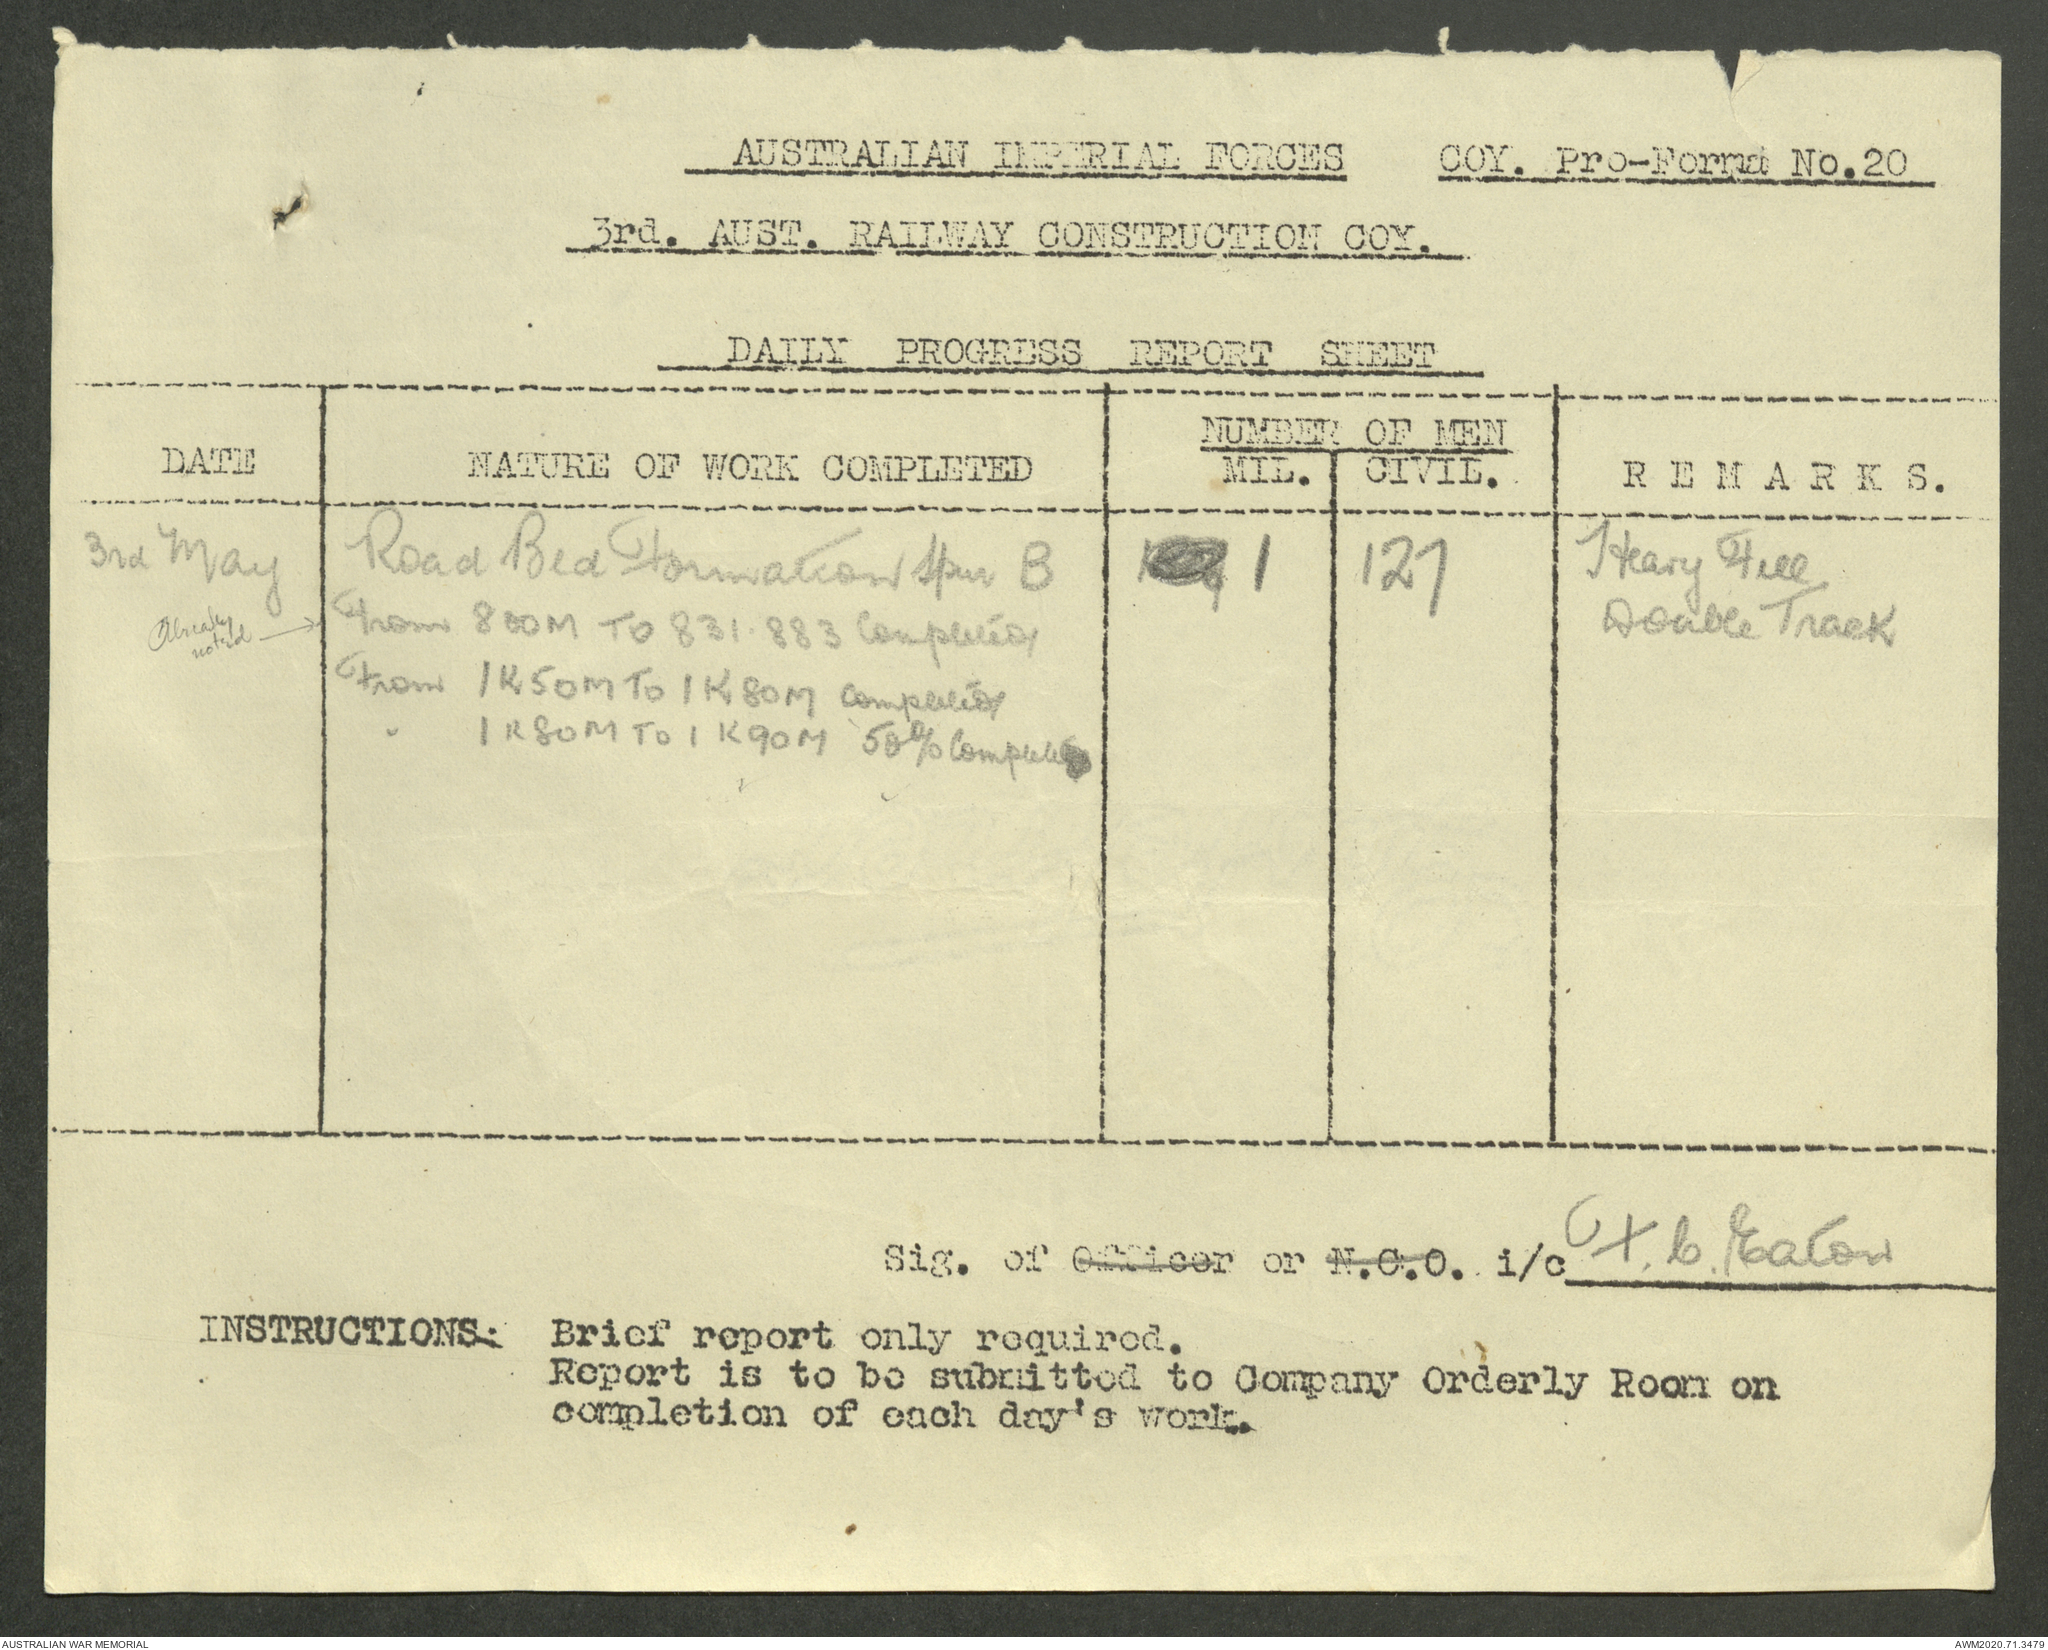 AUSTRALIAN IMPERIAL FORCES COY. Pro-Forma No.20
3rd. AUST. RAILWAY CONSTRUCTION COY.
DAILY PROGRESS REPORT SHEET
NUMBER OF MEN
DATE NATURE OF WORK COMPLETED MIL. CIVIL. R E M A R K S.
3rd May Road Bed Formation Spur B 1 127 Heavy Fill
Already noted → From 800M To 831.883 Completed Double Track
From 1K50M To 1K80M Completed
" 1K80M To 1K90M 50% Complete
Sig. of Officer or N.C.O. i/c F. C. Eaton
INSTRUCTIONS: Brief report only required.
Report is to be submitted to Company Orderly Room on
completion of each day's work.
AUSTRALIAN WAR MEMORIAL AWM2020.71.3479